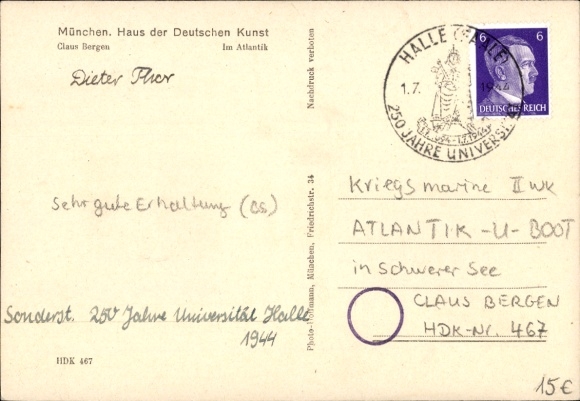 München. Haus der Deutschen Kunst
Claus Bergen Im Atlantik
Dieter
Sehr gute Erhaltung (CS.)
Sonderst. 250 Jahre Universität Halle
1944
HDK 467
Nachdruck verboten
München, Friedrichstr. 34
HALLE (SAALE)
1.7. 1944
250 JAHRE UNIVERSITÄT
6 6
DEUTSCHES REICH
Kriegsmarine II WK
ATLANTIK-U-BOOT
in schwerer See
CLAUS BERGEN
HDK-Nr. 467
15€